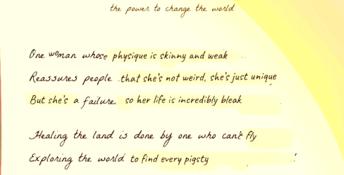 the power to change the world
One woman whose physique is skinny and weak
Reassures people that she's not weird, she's just unique
But she's a failure so her life is incredibly bleak
Healing the land is done by one who can't fly
Exploring the world to find every pigsty